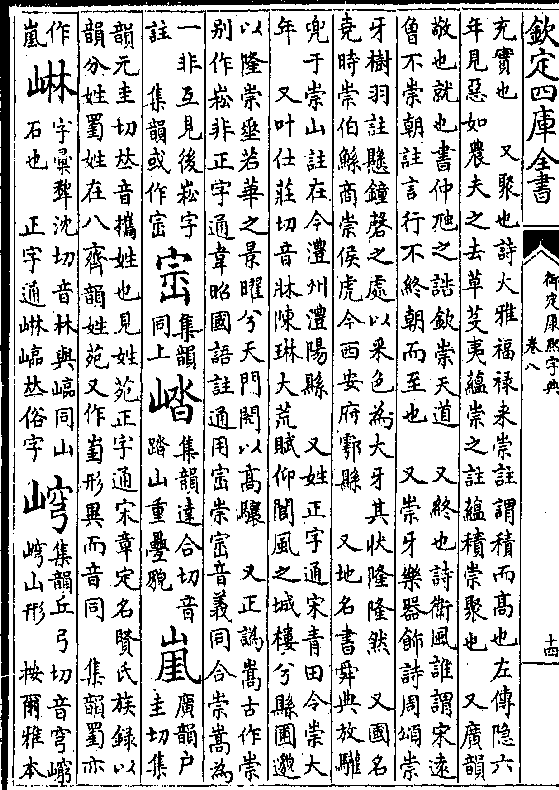 欽定四庫全書
御定康熙字典
卷八
十四
充實也 又聚也詩大雅福祿來崇註謂積而高也左傳隱六
年見惡如農夫之去草芟夷蘊崇之註蘊積崇聚也 又廣韻
敬也就也書仲虺之誥欽崇天道 又終也詩衛風誰謂宋遠
曾不崇朝註言行不終朝而至也 又崇牙樂器飾詩周頌崇
牙樹羽註懸鐘磬之處以采色為大牙其狀隆隆然 又國名
堯時崇伯鯀商崇侯虎今西安府鄠縣 又地名書舜典放驩
兜于崇山註在今澧州澧陽縣 又姓正字通宋青田令崇大
年 又叶仕莊切音牀陳琳大荒賦仰閬風之城樓兮縣圃邈
以隆崇垂若華之景曜兮天門閌以高驤 又正譌嵩古作崇
別作崧非正字通韋昭國語註通用崈崇崈音義同合崇嵩為
一非互見後崧字
註 集韻或作崈
崈集韻
同上
嵡集韻達合切音
踏山重疊貌
崫廣韻户
圭切集
韻元圭切𠀤音攜姓也見姓苑正字通宋章定名賢氏族錄以
韻分姓蜀姓在八齊韻姓苑又作崫形異而音同 集韻蜀亦
作
嵐
崊字彙犂沈切音林與㟭同山
石也 正字通崊㟭𠀤俗字
㟳集韻丘弓切音穹嵤
㟳山形 按爾雅本